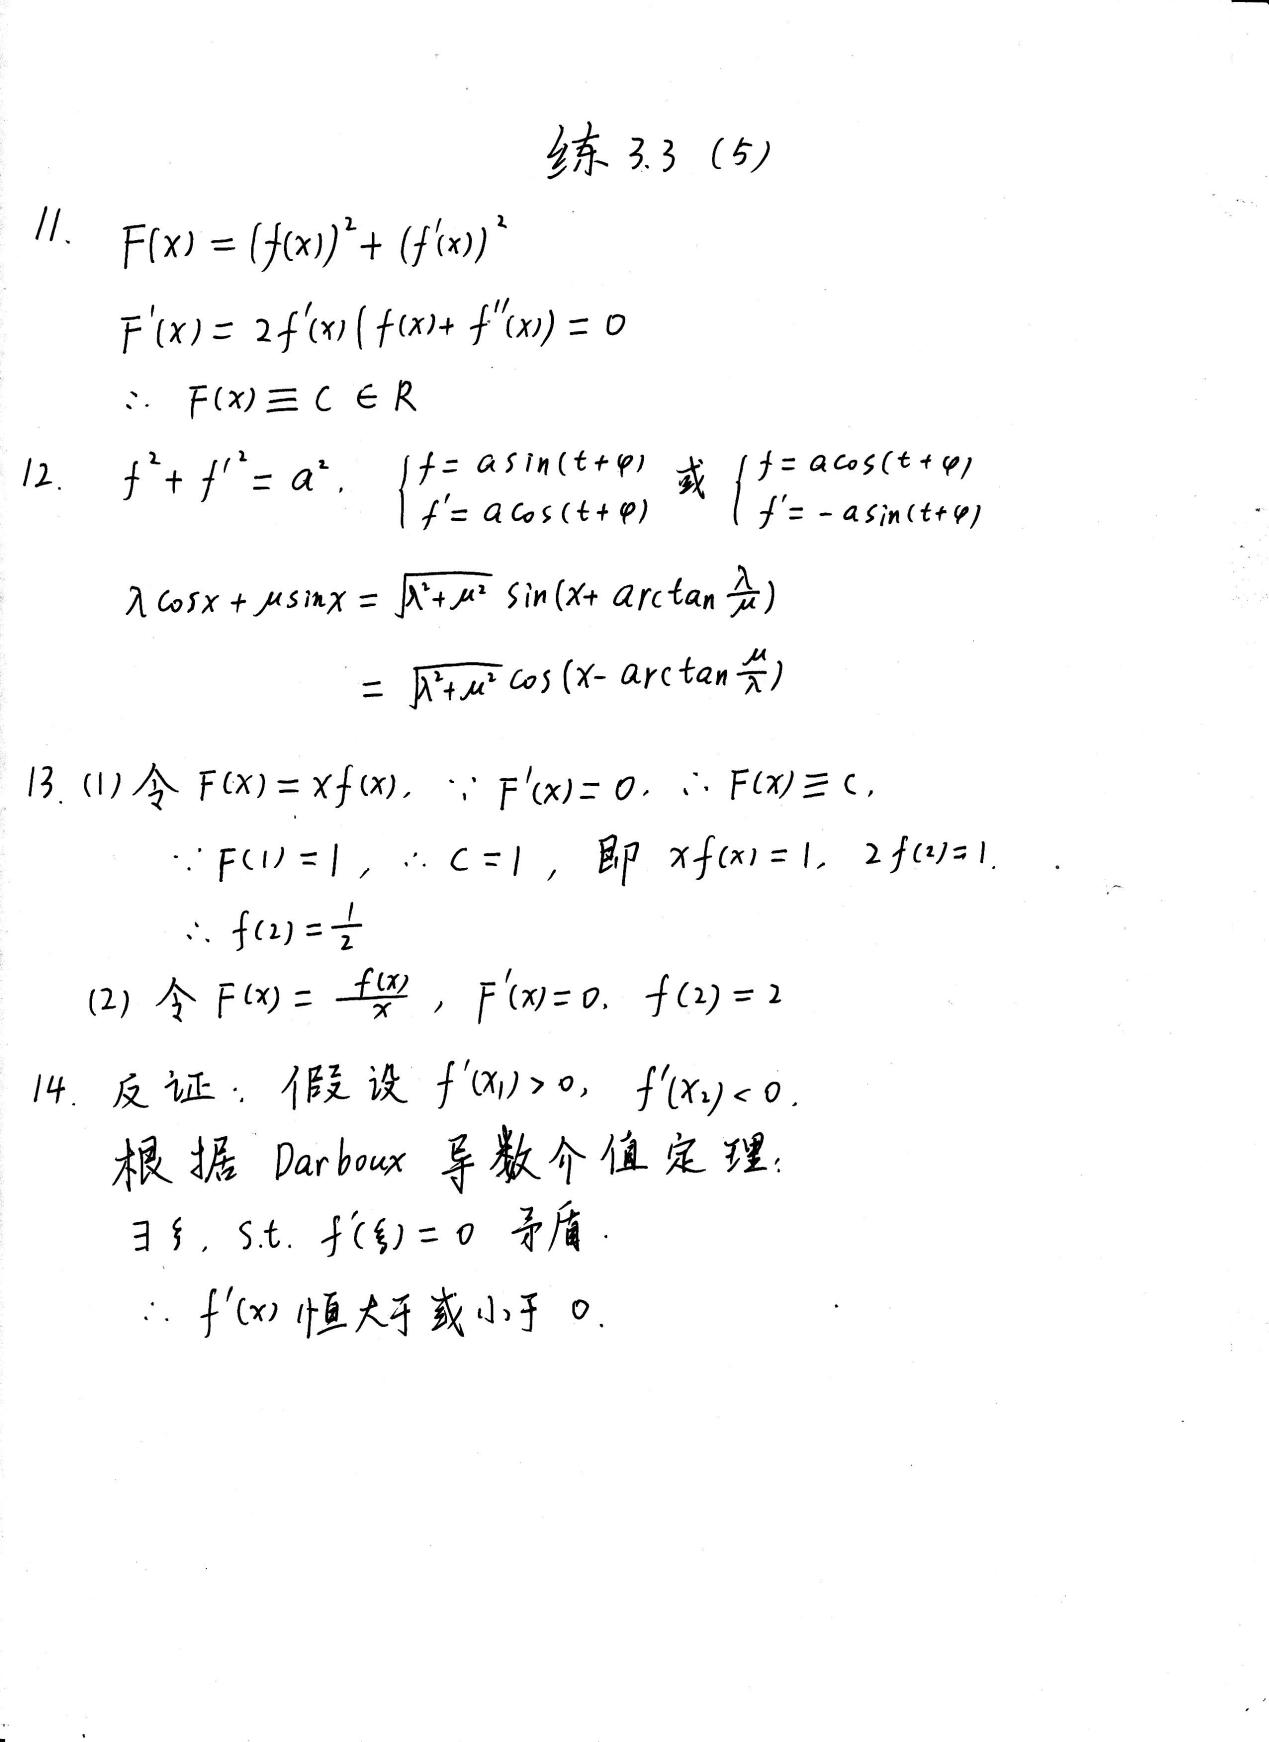 练 3.3 (5)
11. F(x) = (f(x))² + (f'(x))²
F'(x) = 2f'(x)(f(x) + f''(x)) = 0
∴ F(x) ≡ C ∈ R
12. f² + f'² = a². { f = a sin(t+φ) f' = a cos(t+φ) 或 { f = a cos(t+φ) f' = -a sin(t+φ)
λcosx + μsinx = √(λ²+μ²) sin(x + arctan λ/μ)
= √(λ²+μ²) cos(x - arctan μ/λ)
13. (1) 令 F(x) = xf(x). ∵ F'(x) = 0. ∴ F(x) ≡ C,
∵ F(1) = 1, ∴ C = 1, 即 xf(x) = 1. 2f(2) = 1.
∴ f(2) = 1/2
(2) 令 F(x) = f(x)/x, F'(x) = 0. f(2) = 2
14. 反证. 假设 f'(x₁) > 0, f'(x₂) < 0.
根据 Darboux 导数介值定理:
∃ξ, s.t. f'(ξ) = 0 矛盾.
∴ f'(x) 恒大于或小于 0.